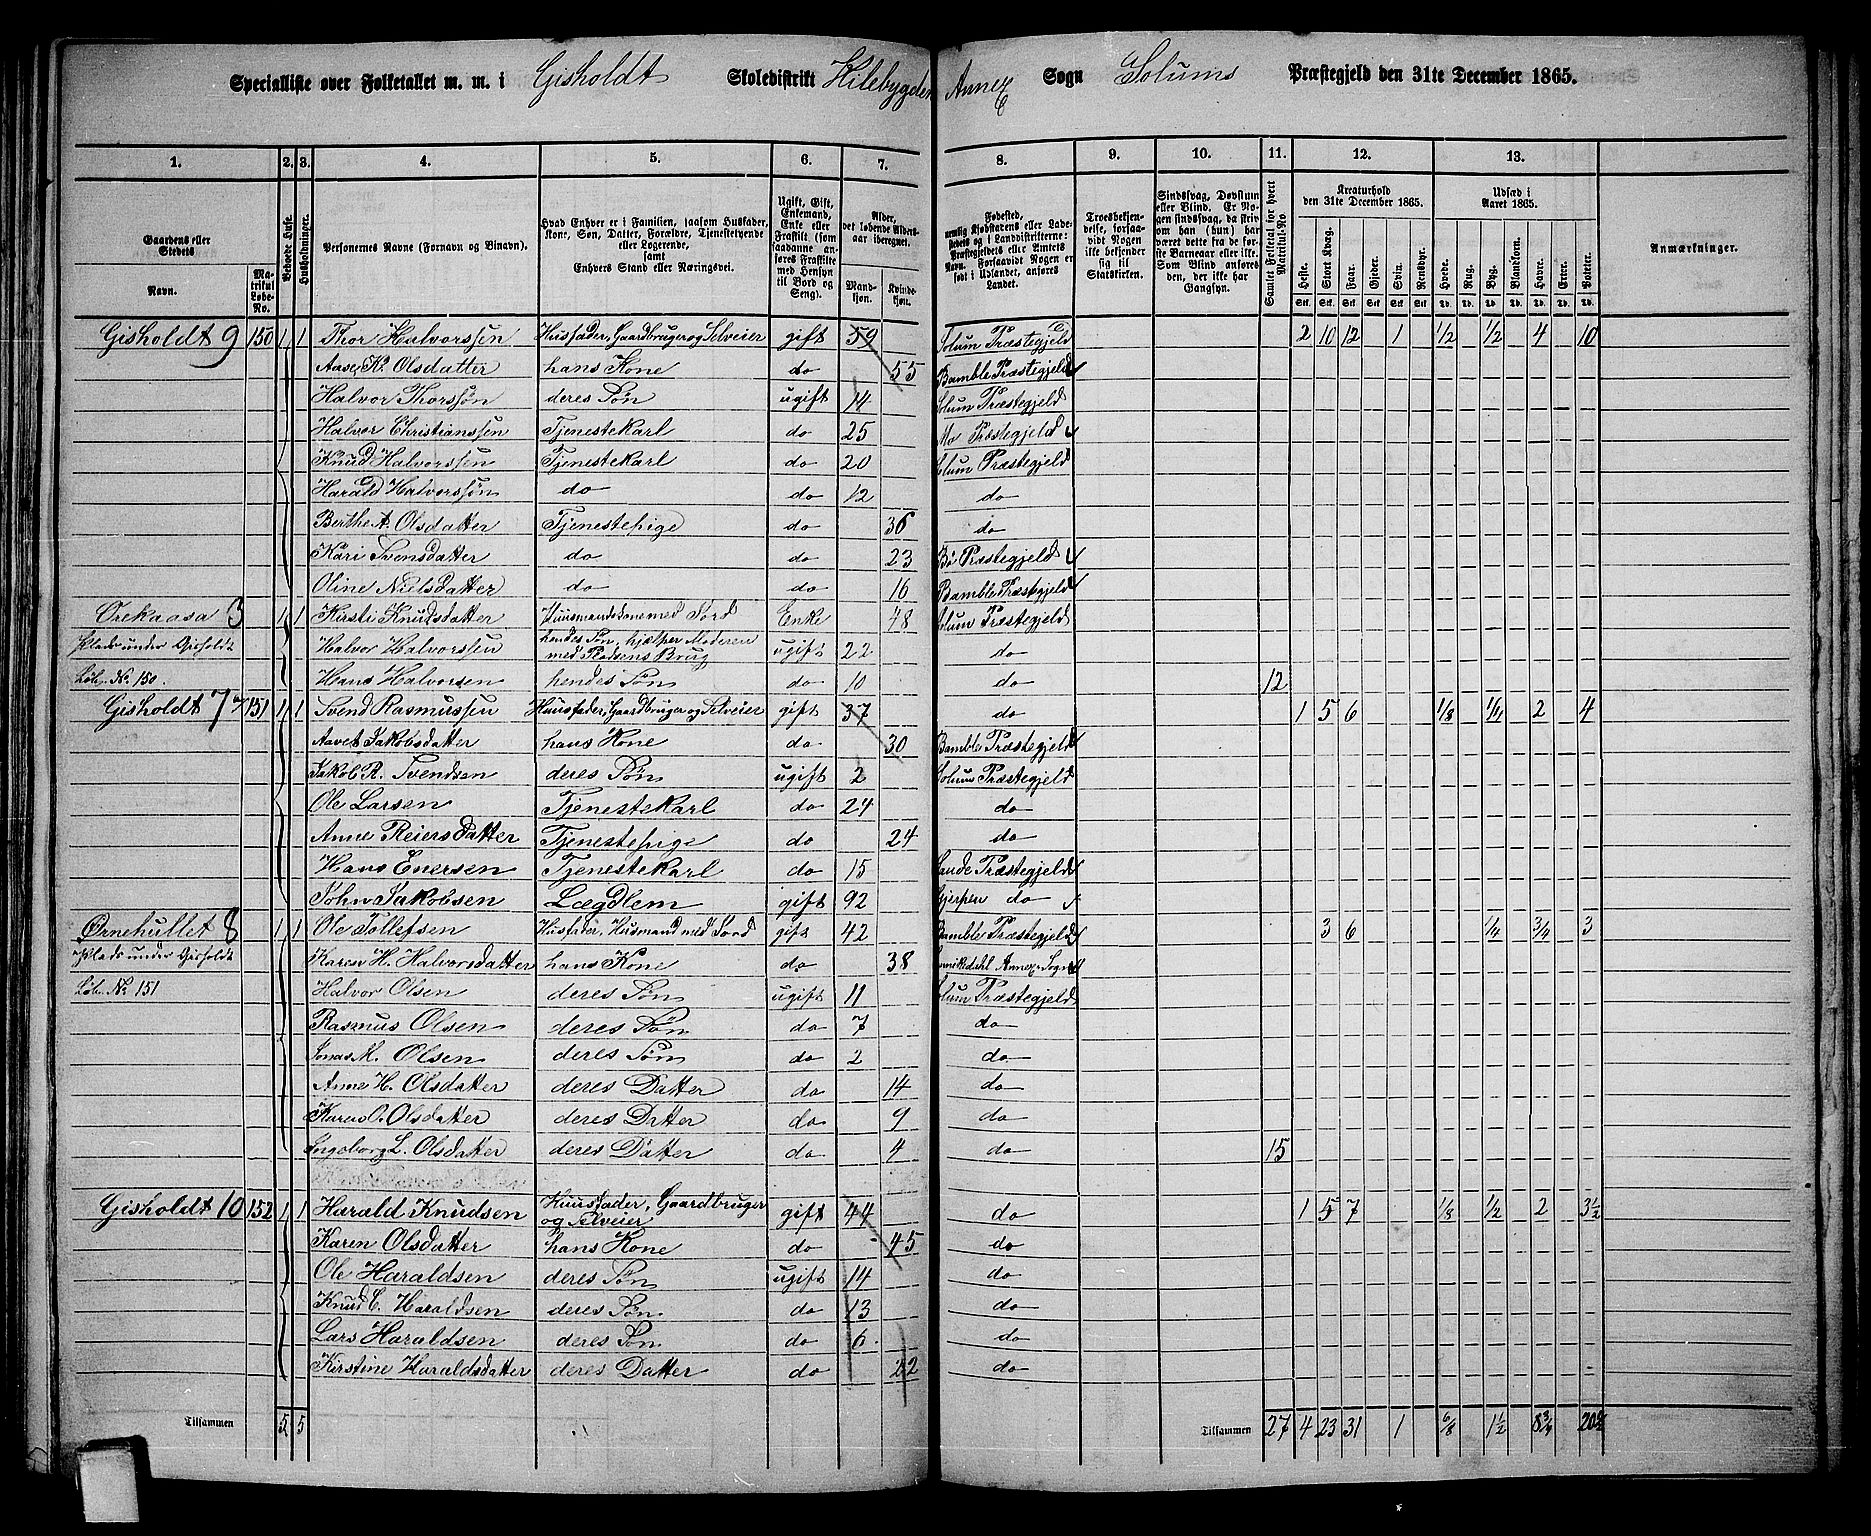 Specialliste over Folketallet m. m. i Gisholdt Skoledistrikt Hilebygden Annex Sogn Solums Præstegjeld den 31te December 1865.
1. 2. 3. 4. 5. 6. 7. 8. 9. 10. 11. 12. 13.
Gaardens eller Stedets Navn. Matrikul Løbe-No. Beboede Huse. Husholdninger. Personernes Navne (Fornavn og Binavn). Hvad Enhver er i Familien, saasom Husfader, Kone, Søn, Datter, Forældre, Tjenestetyende eller Logerende, samt Enhvers Stand eller Næringsvei. Ugift, Gift, Enkemand, Enke eller Fraskilt (som saadanne anføres Fraskilte med Hensyn til Bord og Seng). Alder, det løbende Aldersaar iberegnet. Mandkjøn. Kvindekjøn. Fødested, nemlig Kjøbstadens eller Ladestedets og i Landdistrikterne: Præstegjeldets eller Amtets Navn. Forsaavidt Nogen er født i Udlandet, anføres Landet. Troesbekjendelse, forsaavidt Nogen ikke bekjender sig til Statskirken. Sindssvag, Døvstum eller Blind. Er Nogen sindssvag, da skriv om han (hun) har været dette fra de første Barneaar eller ikke. Som Blind anføres den, der ikke har Gangsyn. Samlet Folketal for hvert Matrikul-No Kreaturhold den 31te December 1865. Udsæd i Aaret 1865. Anmærkninger.
Heste. Stort Kvæg. Faar. Gjeder. Svin. Rensdyr. Hvede. Rug. Byg. Blandkorn. Havre. Erter. Poteter.
Gisholdt 9 150 1 1 Thor Halvorssen Husfader, Gaardbruger og Selveier gift 59 Solum Præstegjeld 2 10 12 1 1/2 1/2 4 10
Aase K. Olsdatter hans Kone do 55 Bamble Præstegjeld
Halvor Thorssøn deres Søn ugift 14 Solum Præstegjeld
Halvor Christianssen Tjenestekarl do 25 Mo Præstegjeld
Knud Halvorssen Tjenestekarl do 20 Solum Præstegjeld
Harald Halvorssøn do do 12 do
Berthe A. Olsdatter Tjenestepige do 36 do
Kari Svensdatter do do 23 Bø Præstegjeld
Oline Nielsdatter do do 16 Bamble Præstegjeld
Orekaasa 3 1 1 Kirsti Knudsdatter Huusmandskone med Jord Enke 48 Solum Præstegjeld
Plads under Gisholdt Halvor Halvorssen hendes Søn, hjælper Moderen med Pladsens Brug ugift 22 do
Løb. No. 150. Hans Halvorsen hendes Søn do 10 do 12
Gisholdt 7 151 1 1 Svend Rasmussen Huusfader, Gaardbruger og Selveier gift 37 do 1 5 6 1/8 1/4 2 4
Aavet Jakobsdatter hans Kone do 30 Bamble Præstegjeld
Jakob R. Svendsen deres Søn ugift 2 Solum Præstegjeld
Ole Larsen Tjenestekarl do 24 do
Anne Reiersdatter Tjenestepige do 24 do
Hans Enersen Tjenestekarl do 15 Sande Præstegjeld
John Jakobsen Lægdlem gift 92 Gjerpen do
Ørnehullet 8 1 1 Ole Tollefsen Husfader, Husmand med Jord gift 42 Bamble Præstegjeld 3 6 1/4 3/4 3
Plads under Gisholdt Karen H. Halvorsdatter hans Kone do 38 Sannikedahl Annex-Sogn
Løb. No. 151 Halvor Olsen deres Søn ugift 11 Solum Præstegjeld
Rasmus Olsen deres Søn do 7 do
Jonas M. Olsen deres Søn do 2 do
Anne H. Olsdatter deres Datter do 14 do
Karen O. Olsdatter deres Datter do 9 do
Ingeborg L. Olsdatter deres Datter do 4 do 15
Gisholdt 10 152 1 1 Harald Knudsen Huusfader, Gaardbruger og Selveier gift 44 do 1 5 7 1/8 1/2 2 3 1/2
Karen Olsdatter hans Kone do 45 do
Ole Haraldsen deres Søn ugift 14 do
Knud C. Haraldsen deres Søn do 13 do
Lars Haraldsen deres Søn do 6 do
Kirstine Haraldsdatter deres Datter do 22 do
Tilsammen 5 5 Tilsammen 27 4 23 31 1 6/8 1 1/2 8 3/4 20 1/2